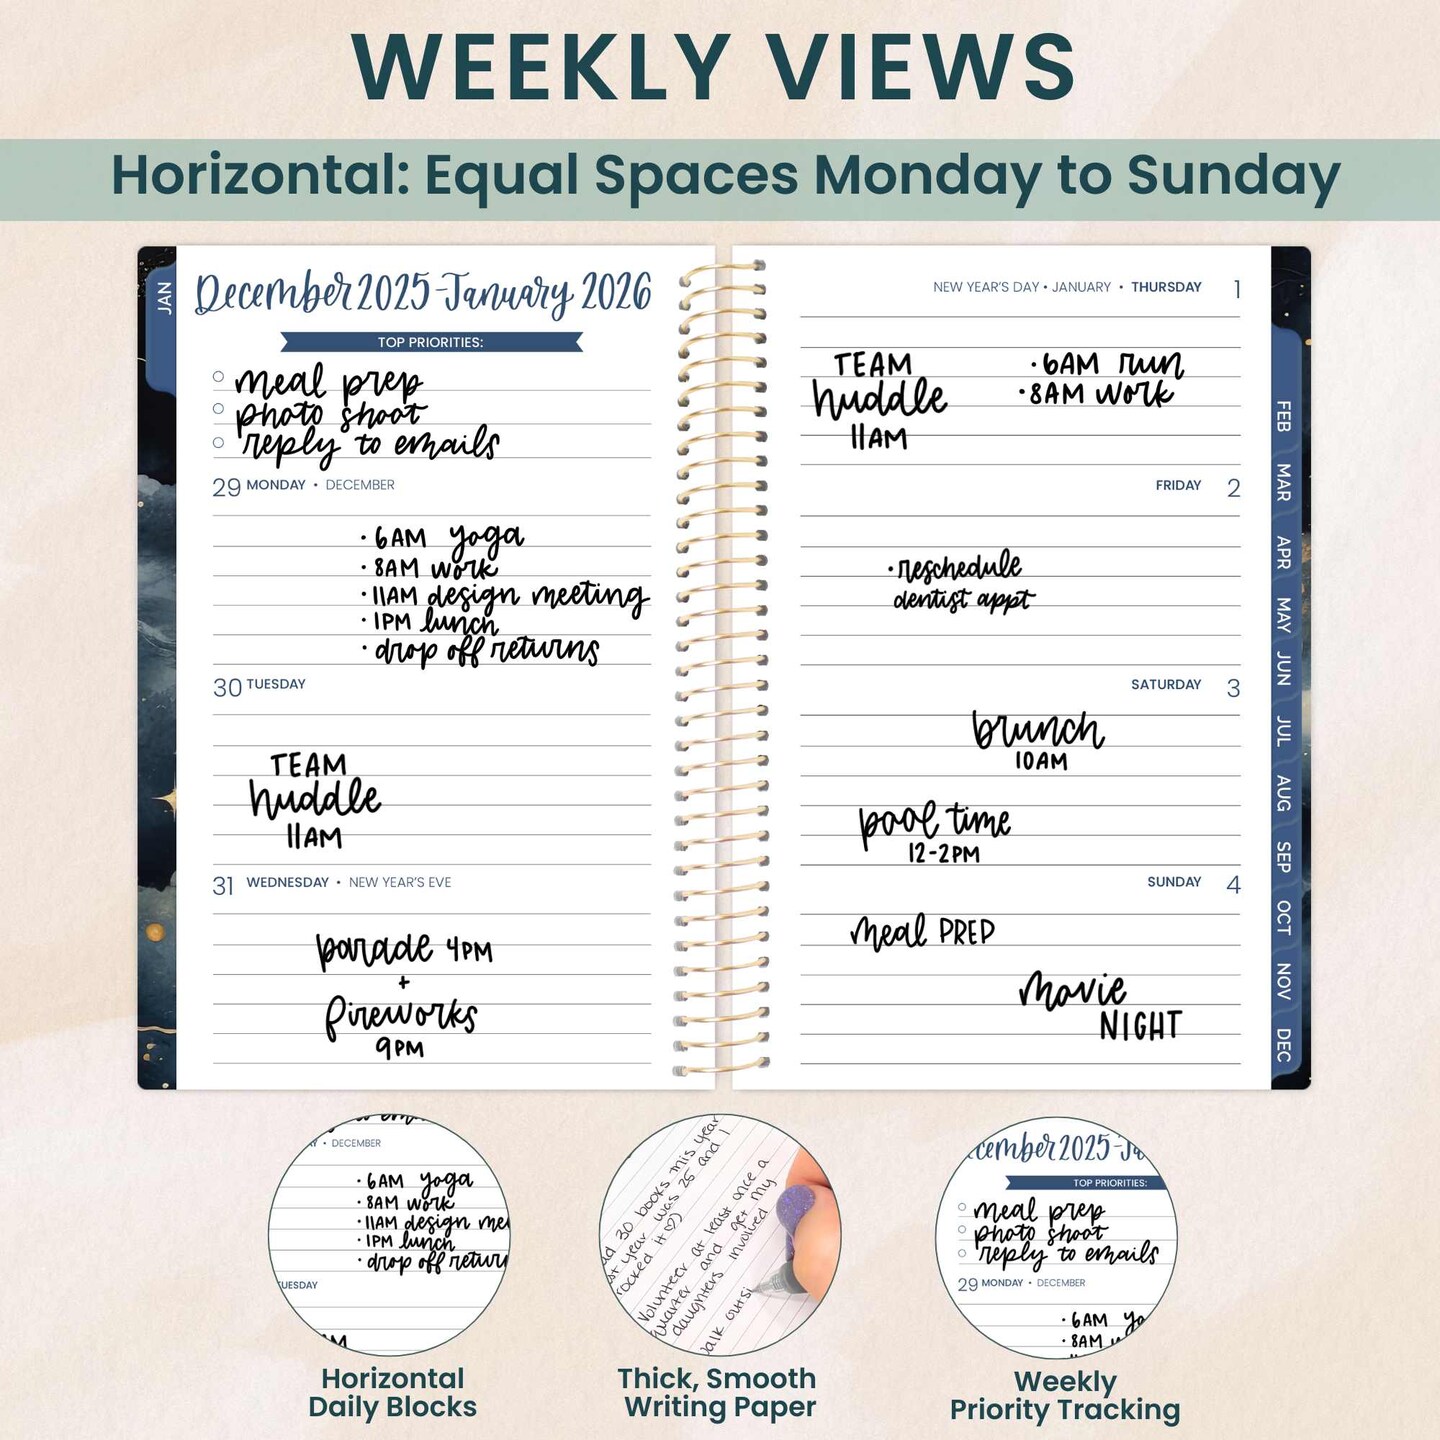 WEEKLY VIEWS
Horizontal: Equal Spaces Monday to Sunday
JAN
December 2025-January 2026
TOP PRIORITIES:
meal prep
photo shoot
reply to emails
29 MONDAY • DECEMBER
• 6AM yoga
• 8AM work
• 11AM design meeting
• 1PM lunch
• drop off returns
30 TUESDAY
TEAM
huddle
11AM
31 WEDNESDAY • NEW YEAR'S EVE
parade 4PM
+
fireworks
9PM
NEW YEAR'S DAY • JANUARY • THURSDAY 1
TEAM
huddle
11AM
• 6AM run
• 8AM work
FRIDAY 2
• reschedule
dentist appt
SATURDAY 3
brunch
10AM
pool time
12-2PM
SUNDAY 4
meal PREP
movie
NIGHT
FEB
MAR
APR
MAY
JUN
JUL
AUG
SEP
OCT
NOV
DEC
• DECEMBER
• 6AM yoga
• 8AM work
• 11AM design me
• 1PM lunch
• drop off return
UESDAY
AM
Horizontal
Daily Blocks
30 books this year
year was 25 and I
rocked it ♡)
Volunteer at least once a
quarter and get my
daughters involved
outsi
Thick, Smooth
Writing Paper
cember 2025-Ja
TOP PRIORITIES:
meal prep
photo shoot
reply to emails
29 MONDAY • DECEMBER
• 6AM yo
• 8AM w
Weekly
Priority Tracking